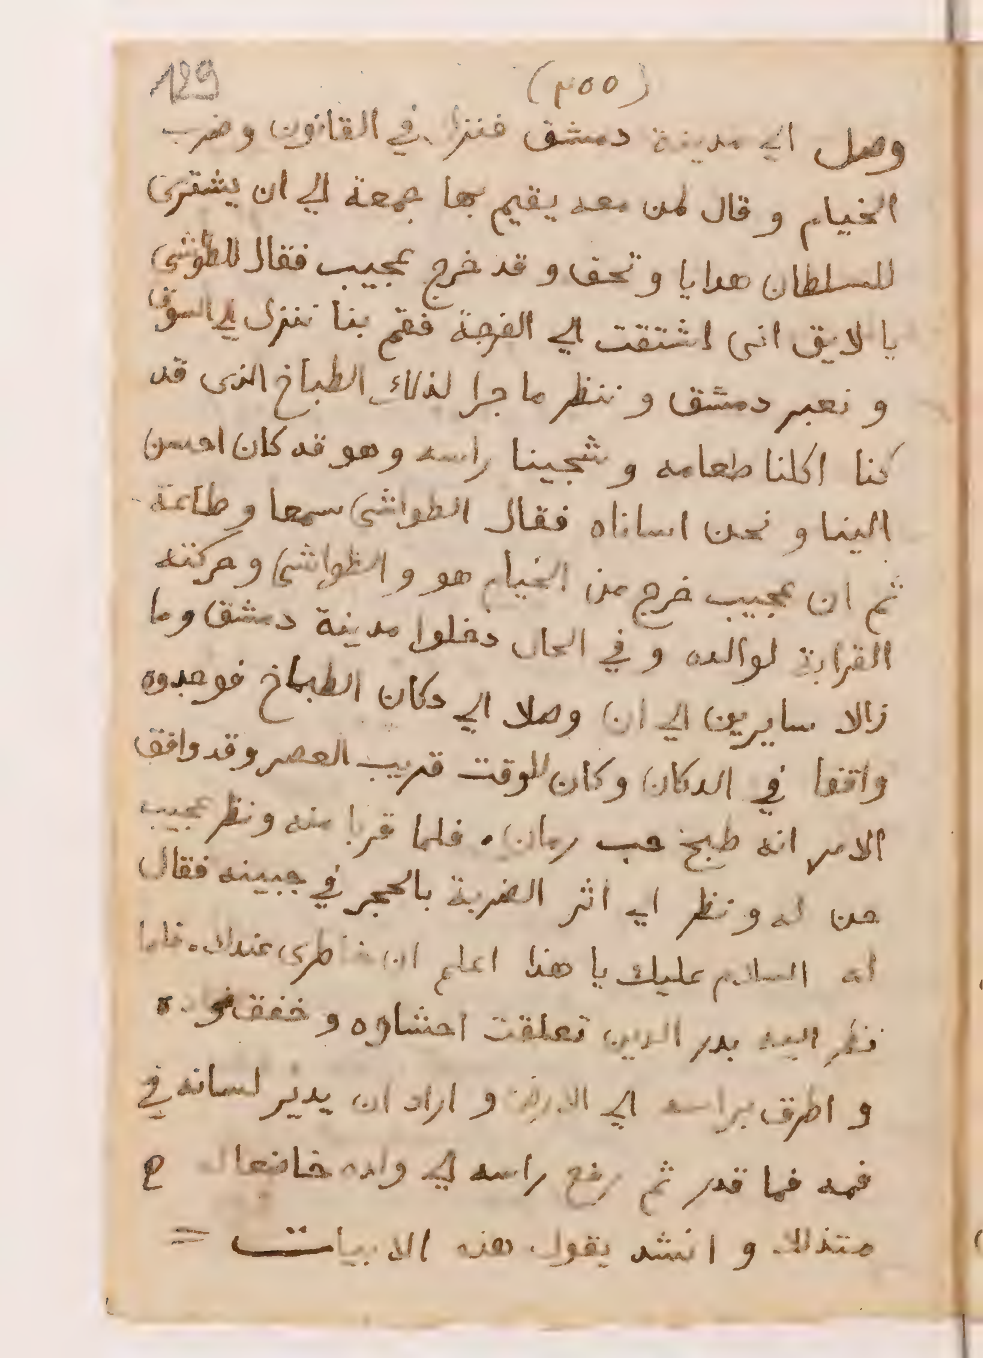 129 (٣٥٥)
وصل الي مدينة دمشق فنزل في القانون وضرب
الخيام و قال لمن معه يقيم بها جمعة الي ان يشتري
للسلطان هدايا و تحف و قد خرج عجيب فقال للطواشي
يا لايق انى اشتقت الي الفرجة فقم بنا ننزل الي السوق
و نعبر دمشق و ننظر ما جرا لذلك الطباخ الذى قد
كنا اكلنا طعامه و شجينا راسه و هو قد كان احسن
الينا و نحن اساناه فقال الطواشي سمعا و طاعة
ثم ان عجيب خرج من الخيام هو و الطواشي و حركته
القرابة لوالده و في الحال دخلوا مدينة دمشق و ما
زالا سايرين الي ان وصلا الي دكان الطباخ فوجدوه
واقفا في الدكان و كان الوقت قريب العصر وقد وافق
الامر انه طبخ حب رمان . فلما قربا منه و نظر عجيب
حن له و نظر الي اثر الضربة بالحجر في جبينه فقال
له السلام عليك يا هذا اعلم ان خاطرى عندك . فلما
نظر اليه بدر الدين تعلقت احشاوه و خفق فواده
و اطرق براسه الي الارض و اراد ان يدير لسانه في
فمه فما قدر ثم رفع راسه الي ولده خاضعا له
متذلل و انشد يقول هذه الابيات =